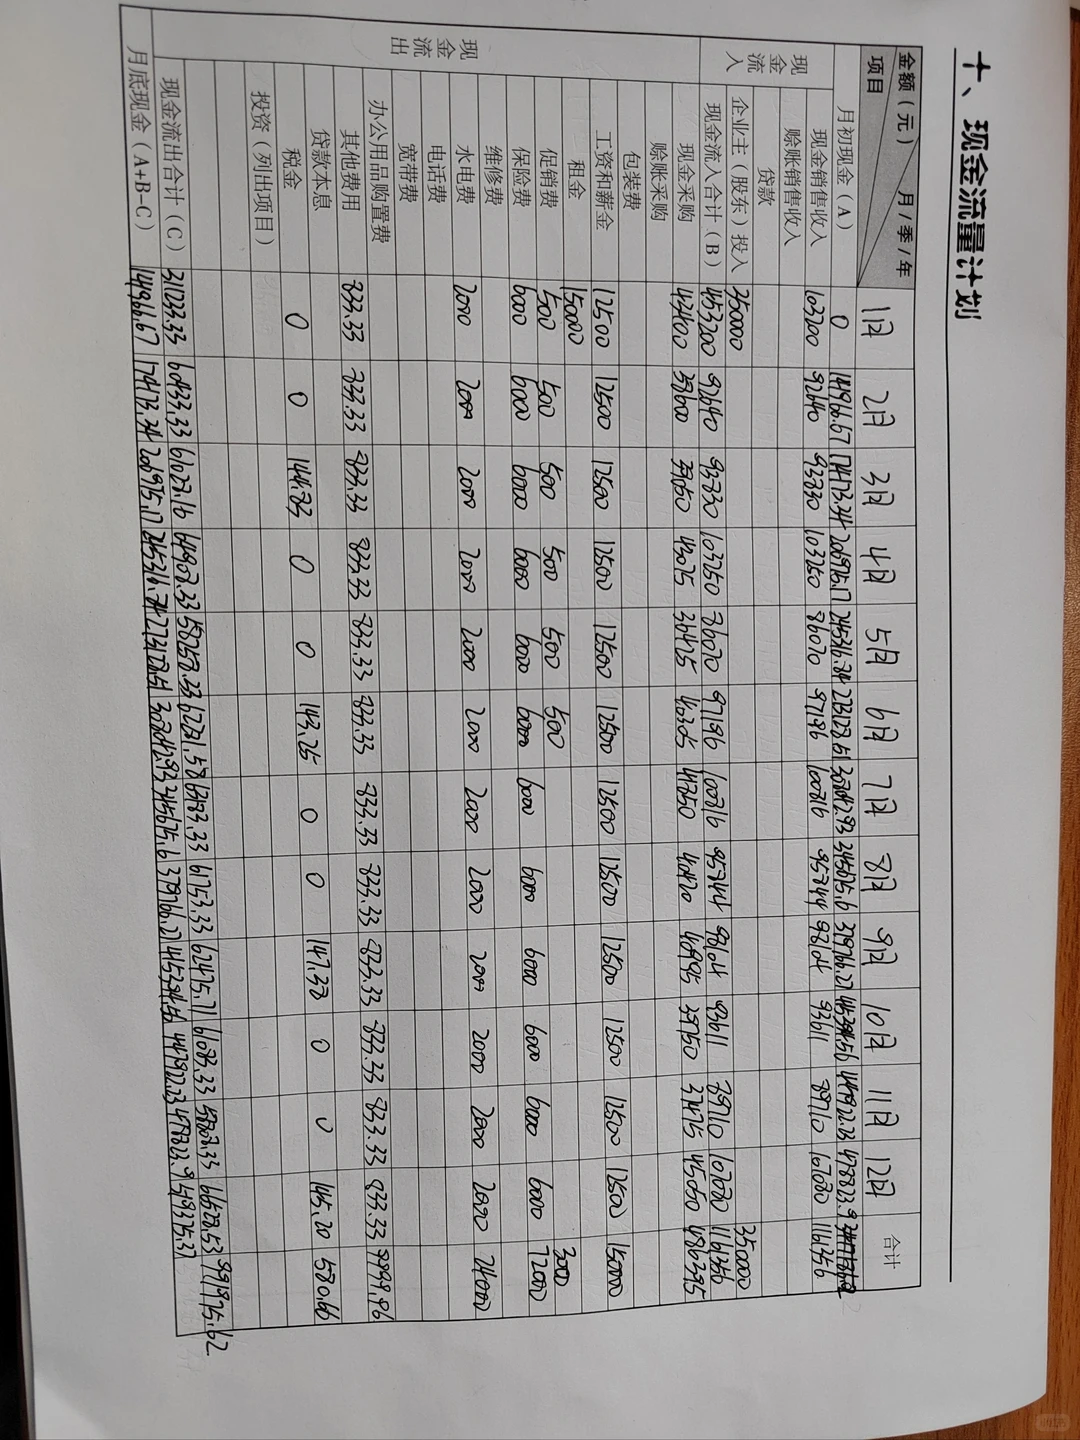 十、现金流量计划
金额（元） 月/季/年 项目 1月 2月 3月 4月 5月 6月 7月 8月 9月 10月 11月 12月 合计
月初现金（A） 0 149966.67 174173.34 206975.17 245316.84 273128.51
现金流入
现金销售收入 103200 92640 93830 103250 86070 97196 100816 95744 98104 93611 89710 107080 1161356
赊账销售收入
贷款
企业主（股东）投入 350000 350000
现金流入合计（B） 453200 92640 93830 103250 86070 97196 100816 95744 98104 93611 89710 107080 1161356
现金流出
现金采购 43400 38600 39050 43075 36425 40305 41850 40420 40995 39750 37475 45050 486395
赊账采购
包装费
工资和薪金 12500 12500 12500 12500 12500 12500 12500 12500 12500 12500 12500 12500 150000
租金 150000
促销费 500 500 500 500 500 500 3000
保险费 6000 6000 6000 6000 6000 6000 6000 6000 6000 6000 6000 6000 72000
维修费
水电费 2000 2000 2000 2000 2000 2000 2000 2000 2000 2000 2000 2000 24000
电话费
宽带费
办公用品购置费
其他费用 833.33 833.33 833.33 833.33 833.33 833.33 833.33 833.33 833.33 833.33 833.33 833.33 9999.96
贷款本息
税金 0 0 144.83 0 0 143.25 0 0 147.38 0 0 145.20 580.66
投资（列出项目）
现金流出合计（C） 60433.33 61028.16 64908.33 58258.33 62281.58 63183.33 61753.33 62475.71 61083.33 58808.33 66528.53
月底现金（A+B-C） 149966.67 174173.34 206975.17 245316.84 273128.51